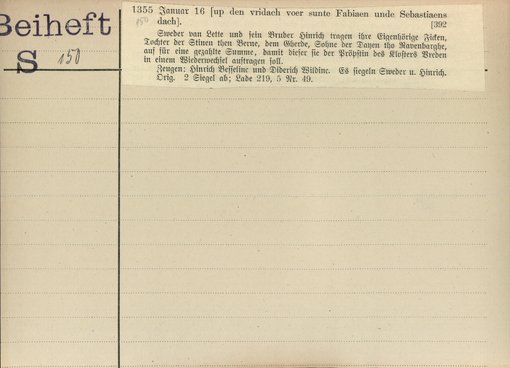 Beiheft
S 150
1355 Januar 16 [up den vridach voer sunte Fabiaen unde Sebastiaens
150 dach]. [392
Sweder van Lette und sein Bruder Hinrich tragen ihre Eigenhörige Ficken,
Tochter der Stinen then Berne, dem Gherde, Sohne der Dayen tho Ravenbarghe,
auf für eine gezahlte Summe, damit dieser sie der Pröpstin des Klosters Vreden
in einem Wiederwechsel auftragen soll.
Zeugen: Hinrich Besseline und Diderich Wildinc. Es siegeln Sweder u. Hinrich.
Orig. 2 Siegel ab; Lade 219, 5 Nr. 49.